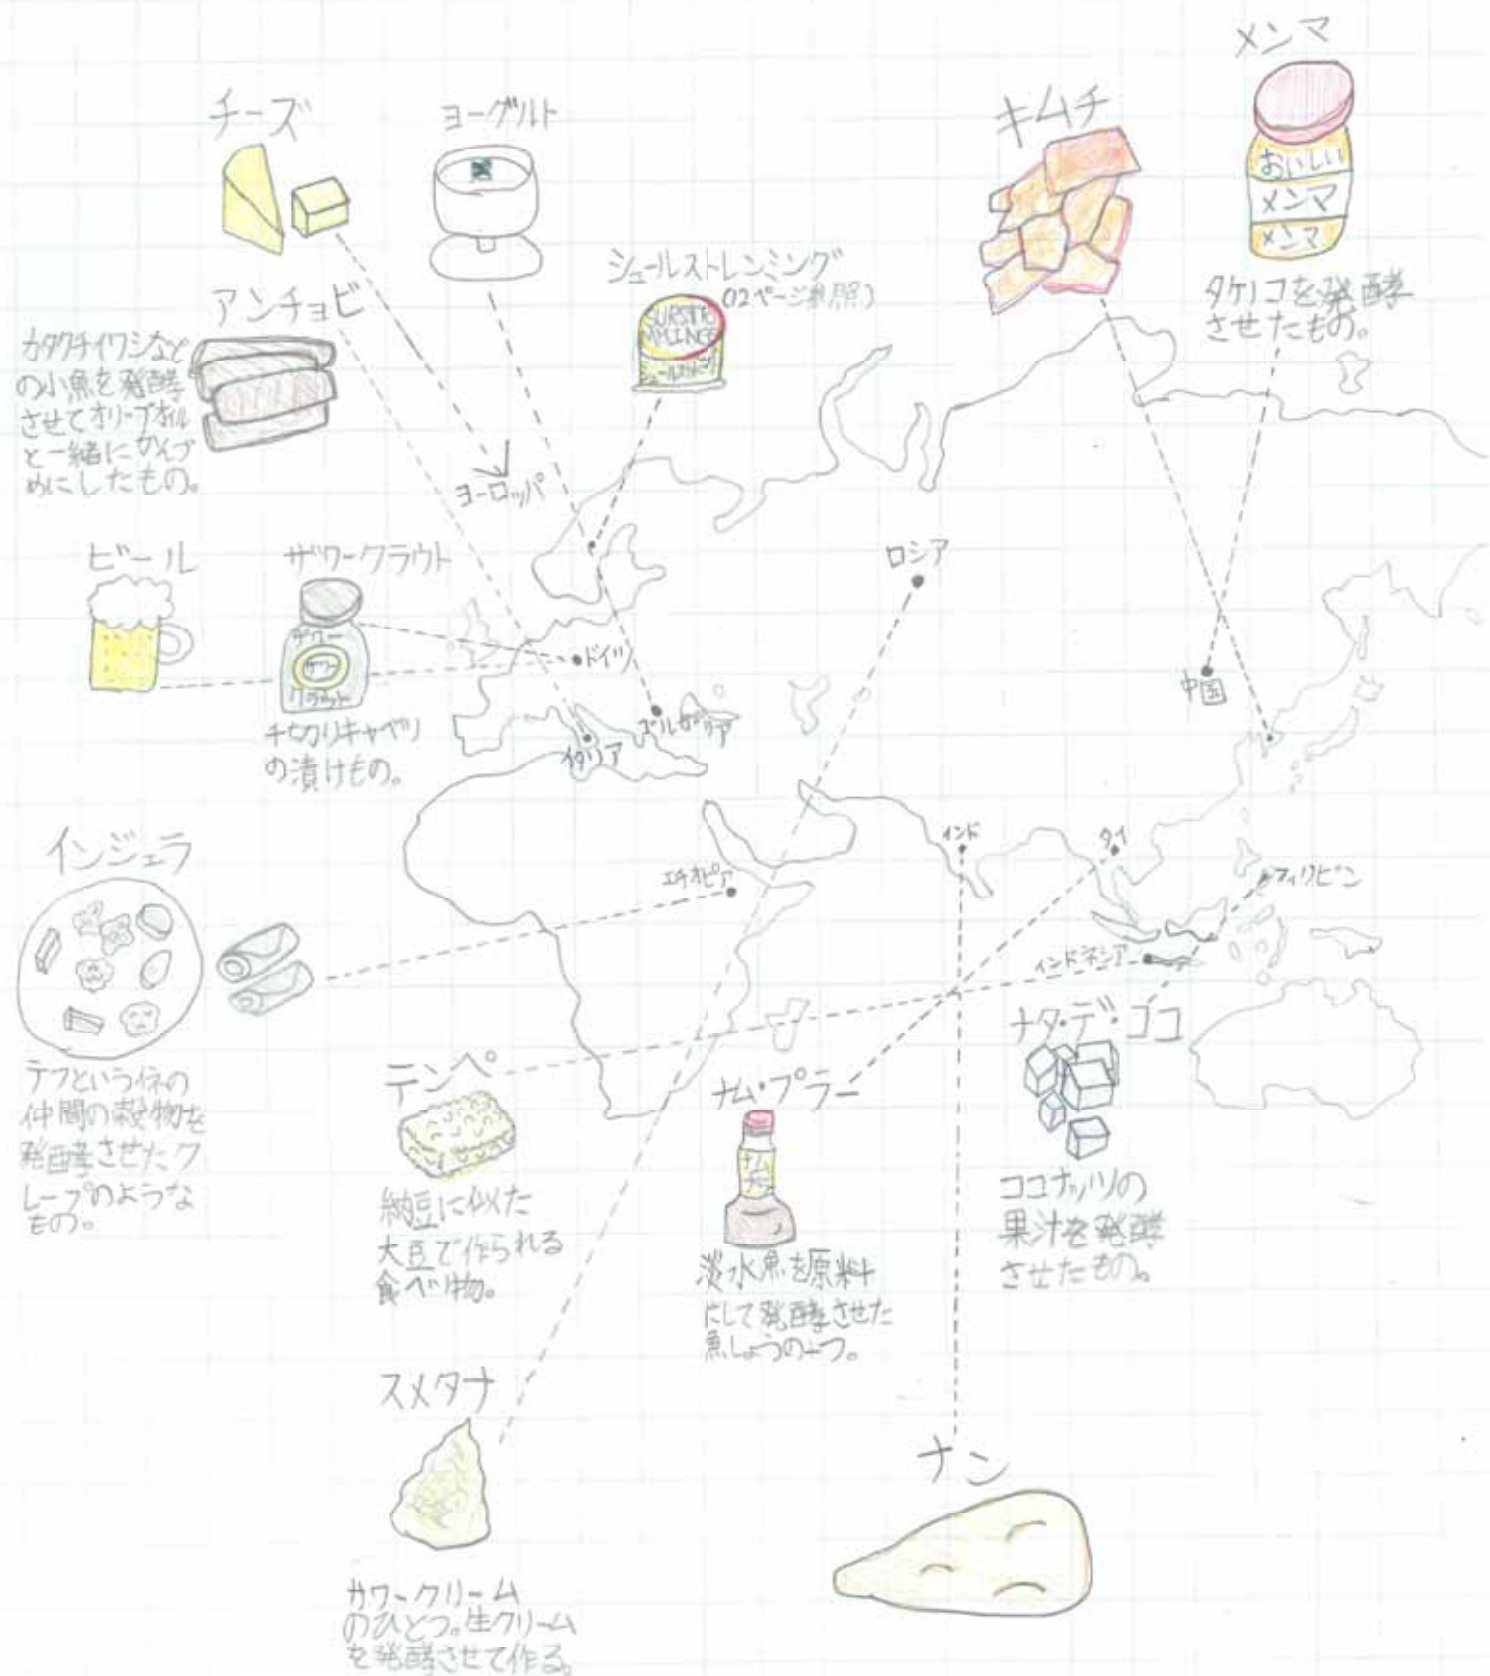 メンマ
おいしい
メンマ
メンマ
タケノコを発酵
させたもの。
チーズ
ヨーグルト
キムチ
シュールストレンミング
(12ページ参照)
アンチョビ
カタクチイワシなど
の小魚を発酵
させてオリーブオイル
と一緒にカンヅ
めにしたもの。
ヨーロッパ
ビール
ザワークラウト
ザワー
クラウト
千切りキャベツ
の漬けもの。
ロシア
ドイツ
中国
ブルガリア
イタリア
インジェラ
テフというイネの
仲間の穀物を
発酵させたク
レープのような
もの。
エチオピア
インド
タイ
フィリピン
インドネシア
テンペ
納豆に似た
大豆で作られる
食べ物。
ナム・プラー
淡水魚を原料
にして発酵させた
魚しょうの一つ。
ナタ・デ・ココ
ココナッツの
果汁を発酵
させたもの。
スメタナ
サワークリーム
のひとつ。生クリーム
を発酵させて作る。
ナン